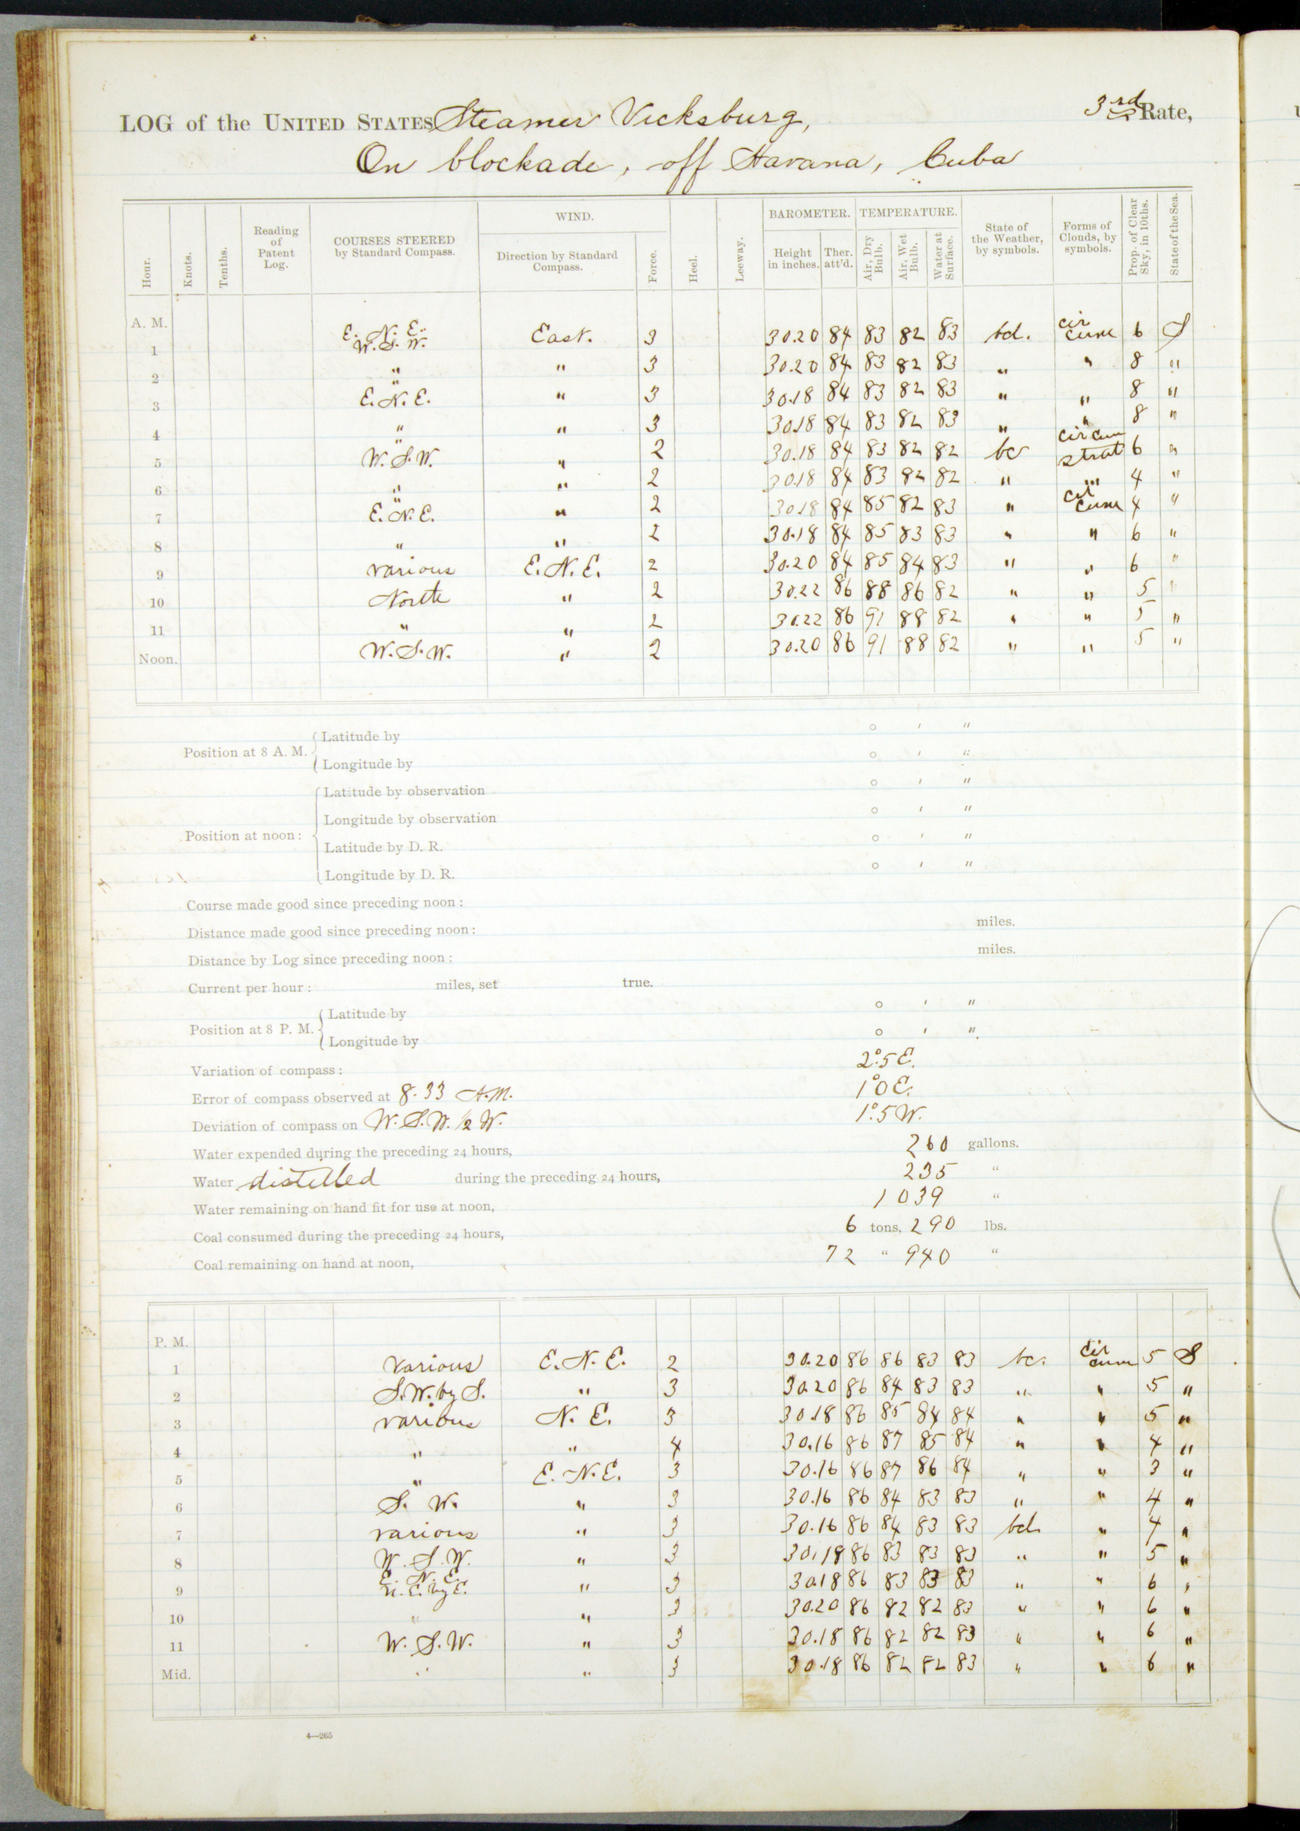 LOG of the UNITED STATES Steamer Vicksburg, 3rd Rate,
On blockade, off Havana, Cuba
Hour. Knots. Tenths. Reading of Patent Log. COURSES STEERED by Standard Compass. WIND. Direction by Standard Compass. Force. Heel. Leeway. BAROMETER. Height in inches. Ther. att'd. TEMPERATURE. Air, Dry Bulb. Air, Wet Bulb. Water at Surface. State of the Weather, by symbols. Forms of Clouds, by symbols. Prop. of Clear Sky, in 10ths. State of the Sea.
A. M.
1 E. N. E. W. S. W. East. 3 30.20 84 83 82 83 bd. cir cum 6 S
2 " " 3 30.20 84 83 82 83 " " 8 "
3 " E. N. E. " 3 30.18 84 83 82 83 " " 8 "
4 " " 3 30.18 84 83 82 83 " " 8 "
5 " W. S. W. " 2 30.18 84 83 82 82 bc cir cum strat 6 "
6 " " 2 30.18 84 83 82 82 " " 4 "
7 " E. N. E. " 2 30.18 84 85 82 83 " cir cum 4 "
8 " " 2 30.18 84 85 83 83 " " 6 "
9 various E. N. E. 2 30.20 84 85 84 83 " " 6 "
10 North " 2 30.22 86 88 86 82 " " 5 "
11 " " 2 30.22 86 91 88 82 " " 5 "
Noon. W. S. W. " 2 30.20 86 91 88 82 " " 5 "
Position at 8 A. M. Latitude by ° ′ ″
Longitude by ° ′ ″
Latitude by observation ° ′ ″
Longitude by observation ° ′ ″
Position at noon: Latitude by D. R. ° ′ ″
Longitude by D. R. ° ′ ″
Course made good since preceding noon:
Distance made good since preceding noon: miles.
Distance by Log since preceding noon: miles.
Current per hour: miles, set true.
Position at 8 P. M. Latitude by ° ′ ″
Longitude by ° ′ ″
Variation of compass: 2°.5 E.
Error of compass observed at 8.33 A.M. 1°0 E.
Deviation of compass on W. S. W. 1/2 W. 1°.5 W.
Water expended during the preceding 24 hours, 260 gallons.
Water distilled during the preceding 24 hours, 235 "
Water remaining on hand fit for use at noon, 1039 "
Coal consumed during the preceding 24 hours, 6 tons, 290 lbs.
Coal remaining on hand at noon, 72 " 940 "
P. M.
1 various E. N. E. 2 30.20 86 86 83 83 bc. cir cum 5 S
2 S. W. by S. " 3 30.20 86 84 83 83 " " 5 "
3 various N. E. 3 30.18 86 85 84 84 " " 5 "
4 " " 4 30.16 86 87 85 84 " " 4 "
5 " E. N. E. 3 30.16 86 87 86 84 " " 3 "
6 S. W. " 3 30.16 86 84 83 83 " " 4 "
7 various " 3 30.16 86 84 83 83 bd. " 4 "
8 W. S. W. " 3 30.18 86 83 83 83 " " 5 "
9 E. N. E. N. E. by E. " 3 30.18 86 83 83 83 " " 6 "
10 " " 3 30.20 86 82 82 83 " " 6 "
11 W. S. W. " 3 30.18 86 82 82 83 " " 6 "
Mid. " " 3 30.18 86 82 82 83 " " 6 "
4—265